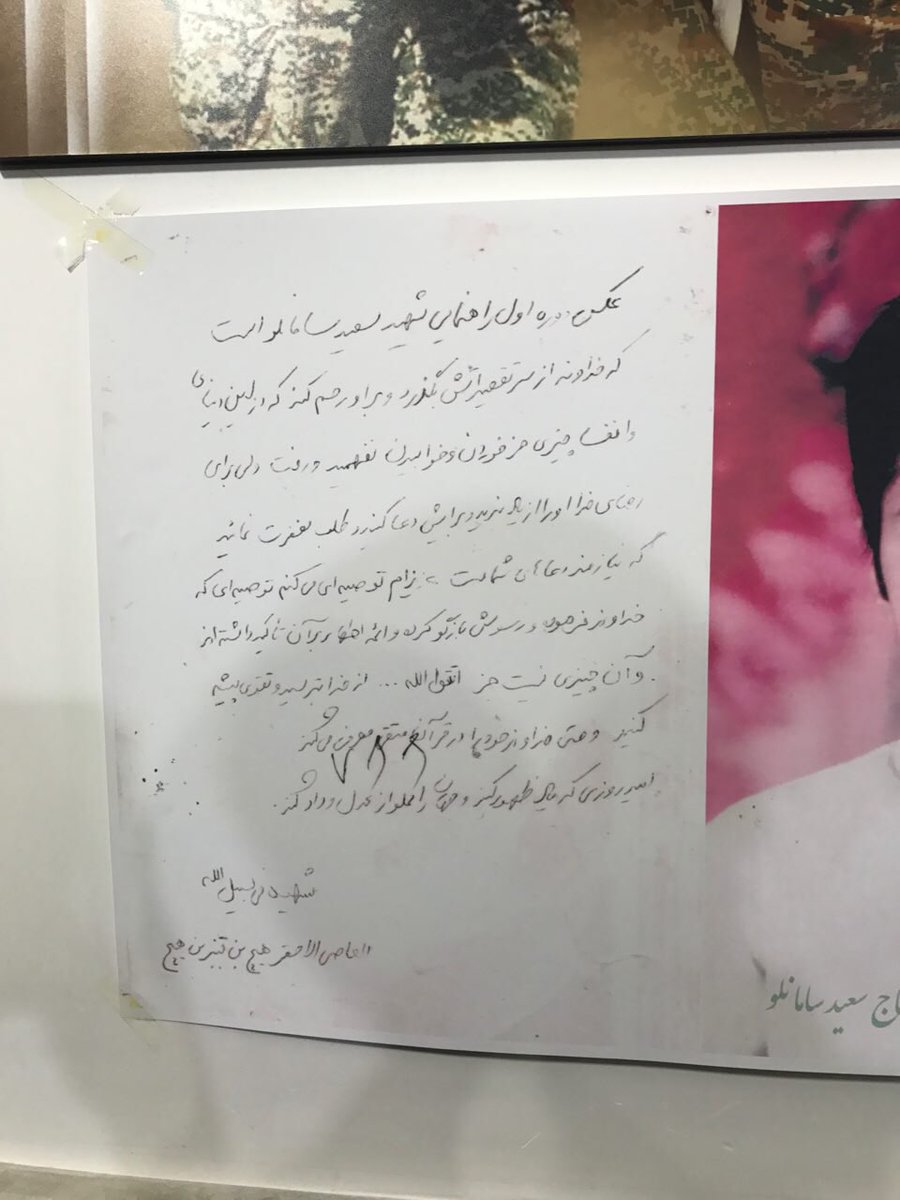 عکس دوره اول راهنمایی شهید سعید سامانلو است
که خداوند از سر تقصیراتش بگذرد و بر او رحم کند که از این دنیای
وانفسا چیزی جز خوردن و خوابیدن نفهمید و رفت ولی برای
رضای خدا او را از یاد نبرید و برایش دعا کنید و طلب مغفرت نمائید
که نیازمند دعای شماست عزیزانم توصیه‌ای می‌کنم توصیه‌ای که
خداوند فرموده و رسولش بازگو کرده و ائمه اطهار بر آن تأکید داشته‌اند
و آن چیزی نیست جز اتقوالله ... از خدا بترسید و تقوی پیشه
کنید و حتی خداوند خود را در قرآن معرفی می‌کند
امید روزی که بیاید ظهور کند و جهان را مملو از عدل و داد کند.
شهید فی سبیل الله
العاصی الاحقر هیچ بن هیچ
حاج سعید سامانلو